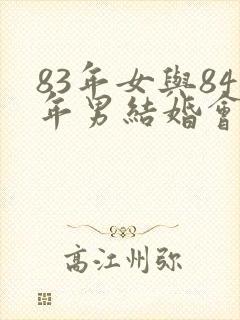 83年女與84
年男結婚會
高江州弥